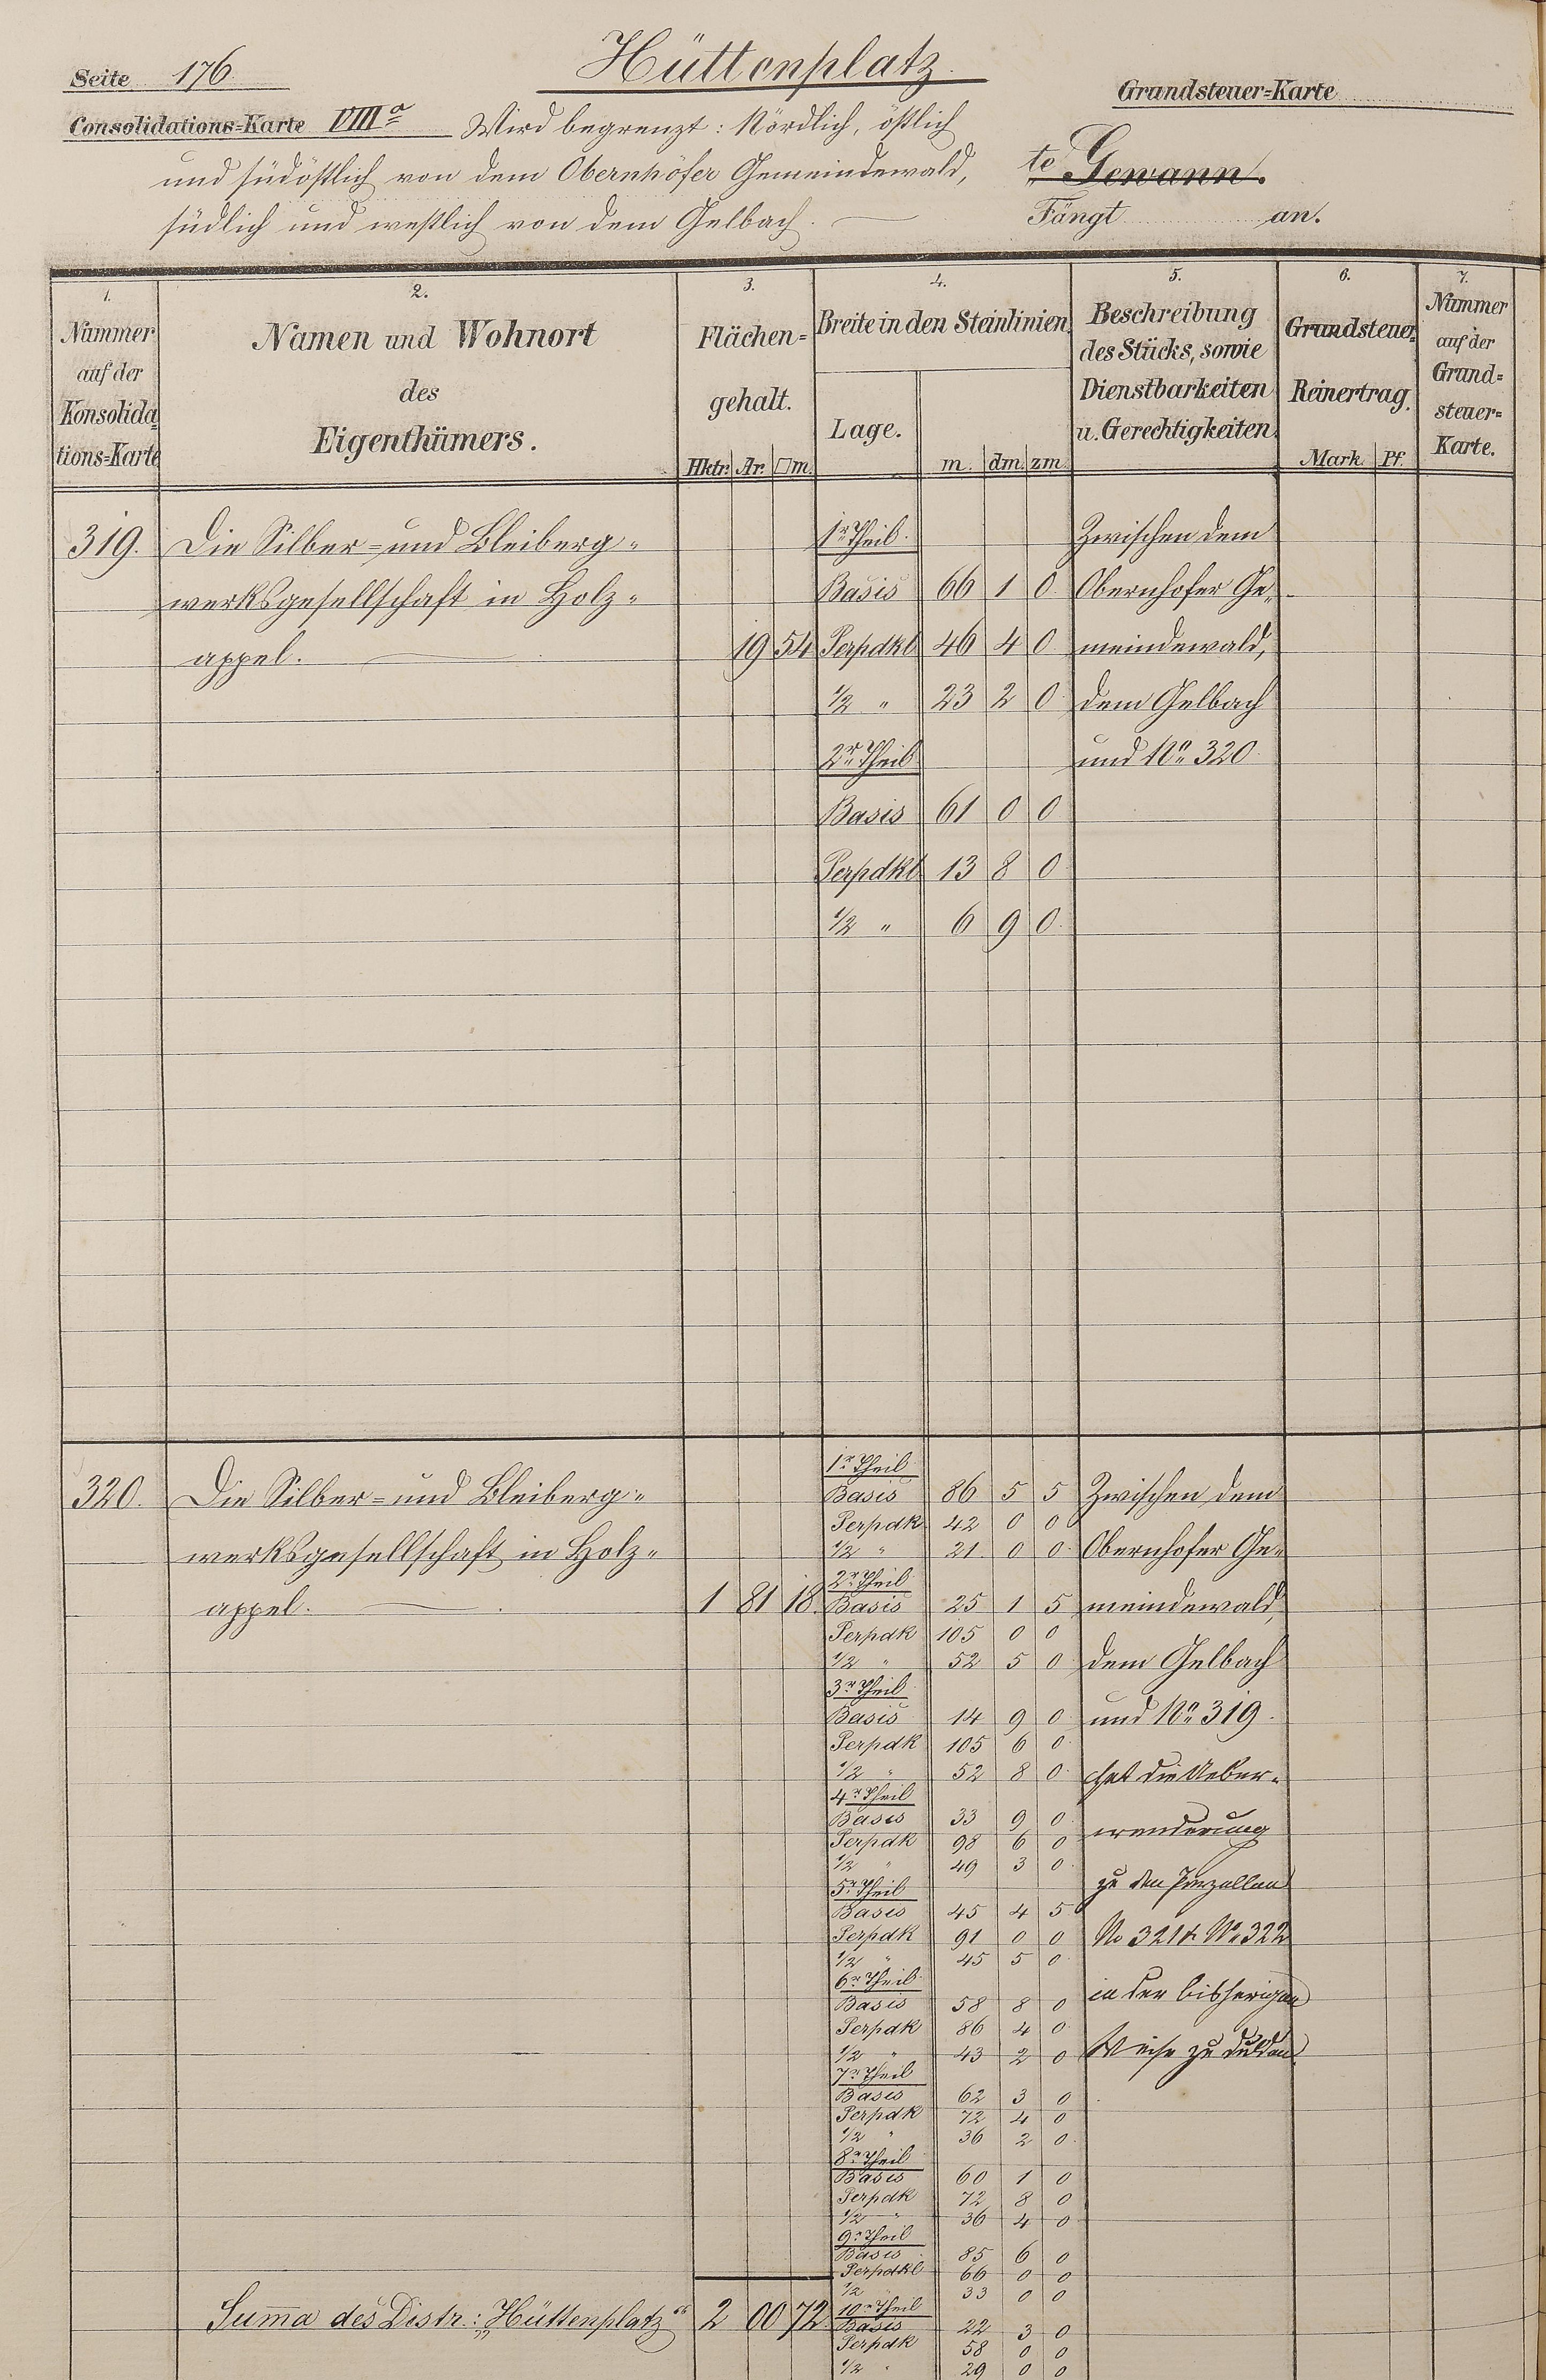 Hüttenplatz.
Seite 176
Grundsteuer=Karte
Consolidations=Karte VIIIa Wird begrenzt: Nördlich, östlich
und südöstlich von dem Obernhöfer Gemeindewald,
südlich und westlich von dem Gelbach.
te Gewann.
Fängt an.
1. Nummer auf der Konsolida=tions=Karte
2. Namen und Wohnort des Eigenthümers.
3. Flächen=gehalt.
Hktr. Ar. □m.
4. Breite in den Steinlinien.
Lage. m. dm. zm.
5. Beschreibung des Stücks, sowie Dienstbarkeiten u. Gerechtigkeiten.
6. Grundsteuer Reinertrag.
Mark. Pf.
7. Nummer auf der Grand=steuer=Karte.
319. Die Silber= und Bleiberg= 1r Theil. Zwischen dem
werksgesellschaft in Holz= Basis 66 1 0 Obernhofer Ge=
appel. 19 54 Perpdkl 46 4 0 meindewald,
1/2 " 23 2 0 dem Gelbach
2r Theil und No 320.
Basis 61 0 0
Perpdkl 13 8 0
1/2 " 6 9 0
1r Theil
320. Die Silber= und Bleiberg= Basis 86 5 5 Zwischen dem
Perpdk 42 0 0
werksgesellschaft in Holz= 1/2 " 21 0 0 Obernhofer Ge=
2r Theil
appel. 1 81 18 Basis 25 1 5 meindewald,
Perpdk 105 0 0
1/2 " 52 5 0 dem Gelbach
3r Theil
Basis 14 9 0 und No 319.
Perpdk 105 6 0
1/2 " 52 8 0 hat die Ueber=
4r Theil
Basis 33 9 0
Perpdk 98 6 0
1/2 " 49 3 0
5r Theil zu den Parzellen
Basis 45 4 5
Perpdk 91 0 0 No 321 & No 322
1/2 " 45 5 0
6r Theil
Basis 58 8 0 in der bisherigen
Perpdk 86 4 0
1/2 " 43 2 0 Weise zu dulden.
7r Theil
Basis 62 3 0
Perpdk 72 4 0
1/2 " 36 2 0
8r Theil
Basis 60 1 0
Perpdk 72 8 0
1/2 " 36 4 0
9r Theil
Basis 85 6 0
Perpdkl 66 0 0
1/2 33 0 0
10r Theil
Sum̄a des Distr.: „Hüttenplatz“ 2 00 72 Basis 22 3 0
Perpdk 58 0 0
1/2 " 29 0 0